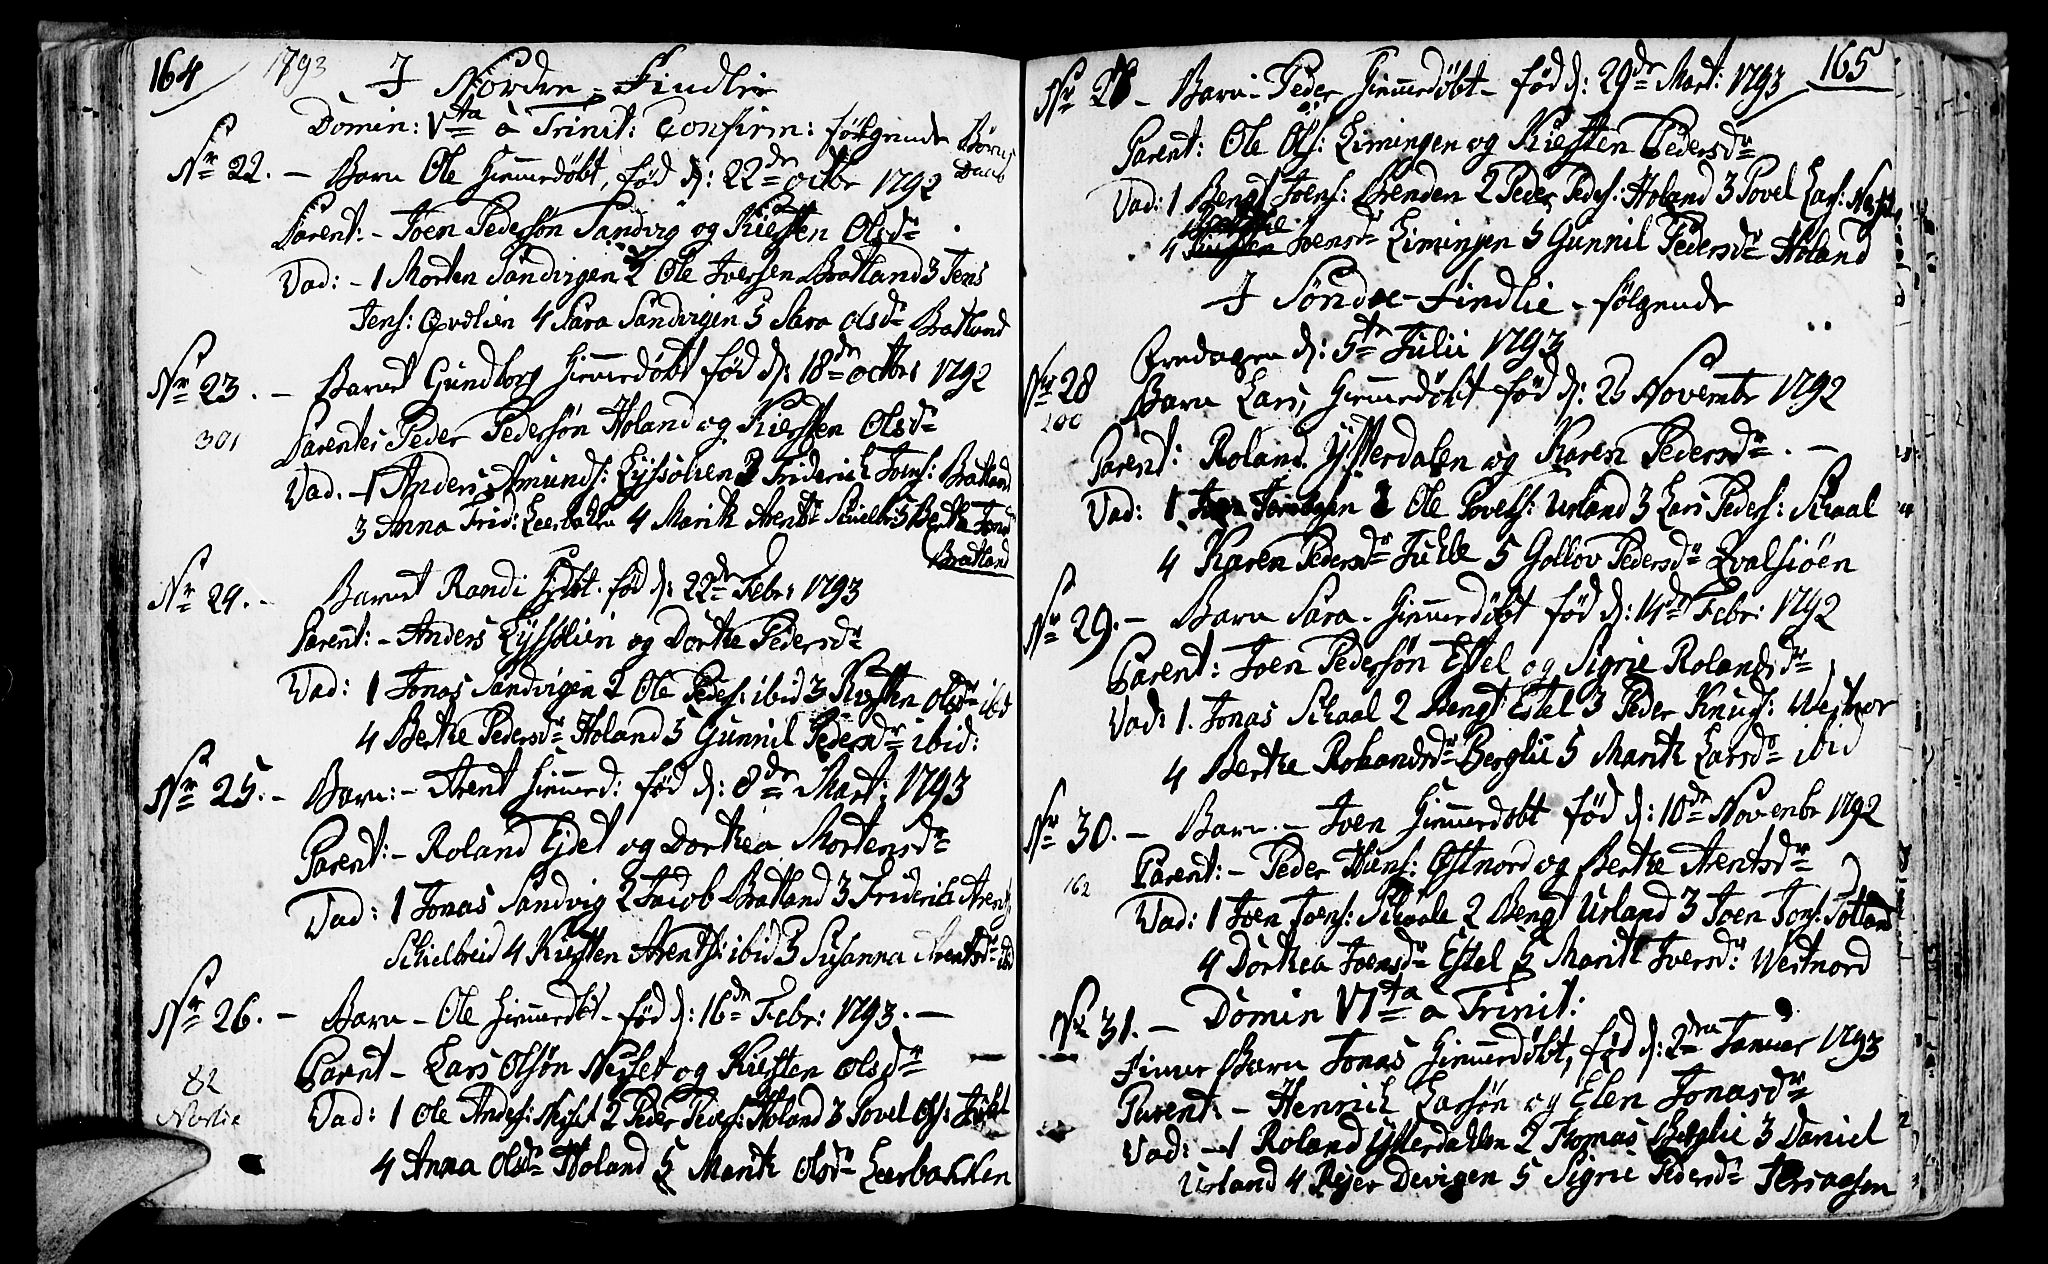 164 1793
I Nordre-Findlie
Domin: Vta a Trinit: Confirm: følgende Børns
Daab
Nr 22. - Barn Ole Hiemmedøbt, fød d: 22de octbr 1792
Parent: - Joen Pedersøn Sandvig og Kiesten Olsdr
Vad: - 1 Morten Sandvigen 2 Ole Iversen Bratland 3 Jens
Jens: Qvelien 4 Sara Sandvigen 5 Sara Olsdr Bratland
Nr 23. - Barnet Gundborg Hiemmedøbt fød d: 18de octbr: 1792
301 Parentes Peder Pedersøn Holand og Kiersten Olsdr
Vad. - 1 Anders Amunds: Lyssølien 2 Friderich Joens: Bratland
3 Anna Frid: Leerbakken 4 Marith Arents Schielbrei 5 Berthe Jonsdr
Bratland
Nr 24. - Barnet Randi Hidbt. fød d: 22de Febr: 1793
Parent: - Anders Lyssølien og Dorthe Pedersdr
Vad: 1 Jonas Sandvigen 2 Ole Peders: ibid 3 Kiesten Olsdr ibid
4 Berthe Pedersdr Holand 5 Gunnil Pedersdr ibid:
Nr 25. - Barn: - Arent Hiemmed: fød d: 8de Mart: 1793
Parent: - Roland Ejdet og Dorthea Mortensdr
Vad: 1 Jonas Sandvig 2 Jacob Bratland 3 Friderich Arents
Schielbreid 4 Kiesten Arents: ibid 5 Susanna Arentsdr ibid
Nr 26. - Barn - Ole Hiemmedbt - fød d: 16de Febr: 1793. -
Parent - Lars Olsøn Neset og Kiesten Olsdr
82 Vad: 1 Ole Anders: Neset 2 Peder Peders: Holand 3 Povel Ols:
Nordlie
4 Anna Olsdr Holand 5 Marith Olsdr Leerbakken
165
Nr 27 - Barn - Peder Hiemmedøbt - fød d: 29de Mart: 1793
Parent: Ole Ols: Limingen og Kiesten Pedersdr
Vad: 1 Bengt Joens: Brenden 2 Peder Peders: Holand 3 Povel Lars:
4 Joensdr Limingen 5 Gunnil Pedersdr Holand
I Søndre-Findlie - følgende
Fredagen d: 5te Julii 1793
Nr 28 Barn Lars, Hiemmedøbt fød d: 25 Novembr 1792
100
Parent: Roland Ysterdalen og Karen Pedersdr. -
Vad: 1 2 Ole Povels: Urland 3 Lars Peders: Skaal
4 Karen Pedersdr 5 Gollov Pedersdr Qvalsiøen
Nr 29. - Barn Sara - Hiemmedøbt fød d: 14de Febr: 1792
Parent: Joen Pedersøn Estel og Sigrie Rolandsdr
Vad: 1. Jonas Skaal 2 Bengt Estel 3 Peder Knuds: Westnor
4 Berthe Rolandsdr Berglie 5 Marith Larsdr ibid
Nr 30. - Barn. - Joen Hiemmedøbt fød d: 10de Novenbr 1792
162 Parent: - Peder Hans: Østnord og Berthe Arentsdr
Vad: 1 Joen Joens: Skaale 2 Bengt Urland 3 Joen Jons: Totland
4 Dorthea Joensdr Estel 5 Marith Iversdr: Westnord
Domin VIta a Trinit:
Nr 31. - Finner Barn Jonas Hiemmedøbt, fød d: 2den Januar 1793
Parent: - Henrich Larsøn og Elen Jonasdr
Vad: - 1 Roland Ysterdahlen 2 Thomas Berglie 3 Daniel
Urland 4 Rejer Devigen 5 Sigrie Pedersdr